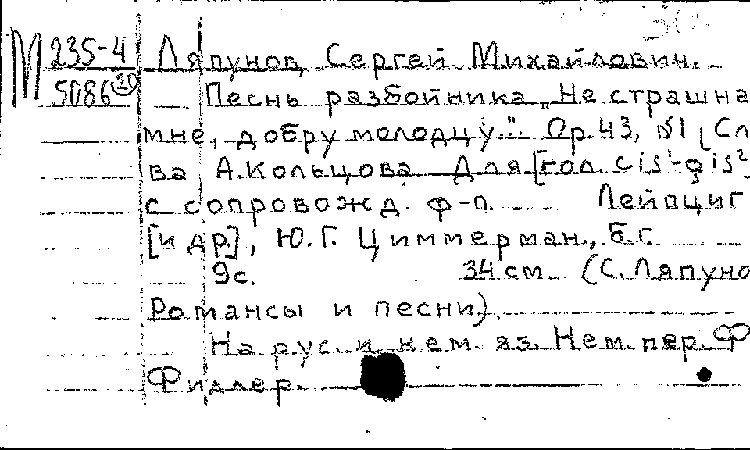 М 235-4
5086
Ляпунов, Сергей Михайлович.
Песнь разбойника „Не страшна
мне, добру молодцу". Ор. 43, №1 [Сл
ва А. Кольцова. Для [гол. cis¹-gis²]
с сопровожд. ф-п. Лейпциг
[и др.], Ю.Г. Циммерман, б.г.
9с. 34 см. (С. Ляпуно
Романсы и песни).
На рус. и нем. яз. Нем. пер. Ф
Фидлер.